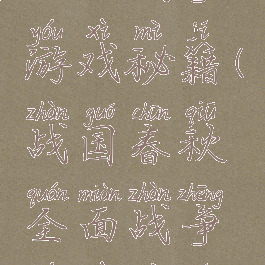 yóu xì mì jí
游戏秘籍(
zhàn guó chūn qiū
战国春秋
quán miàn zhàn zhēng
全面战争